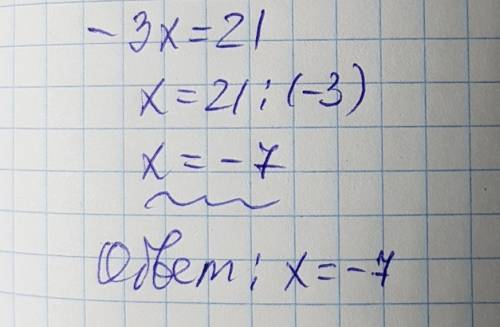 - 3x=21
x=21:(-3)
x=-7
Ответ: x=-7